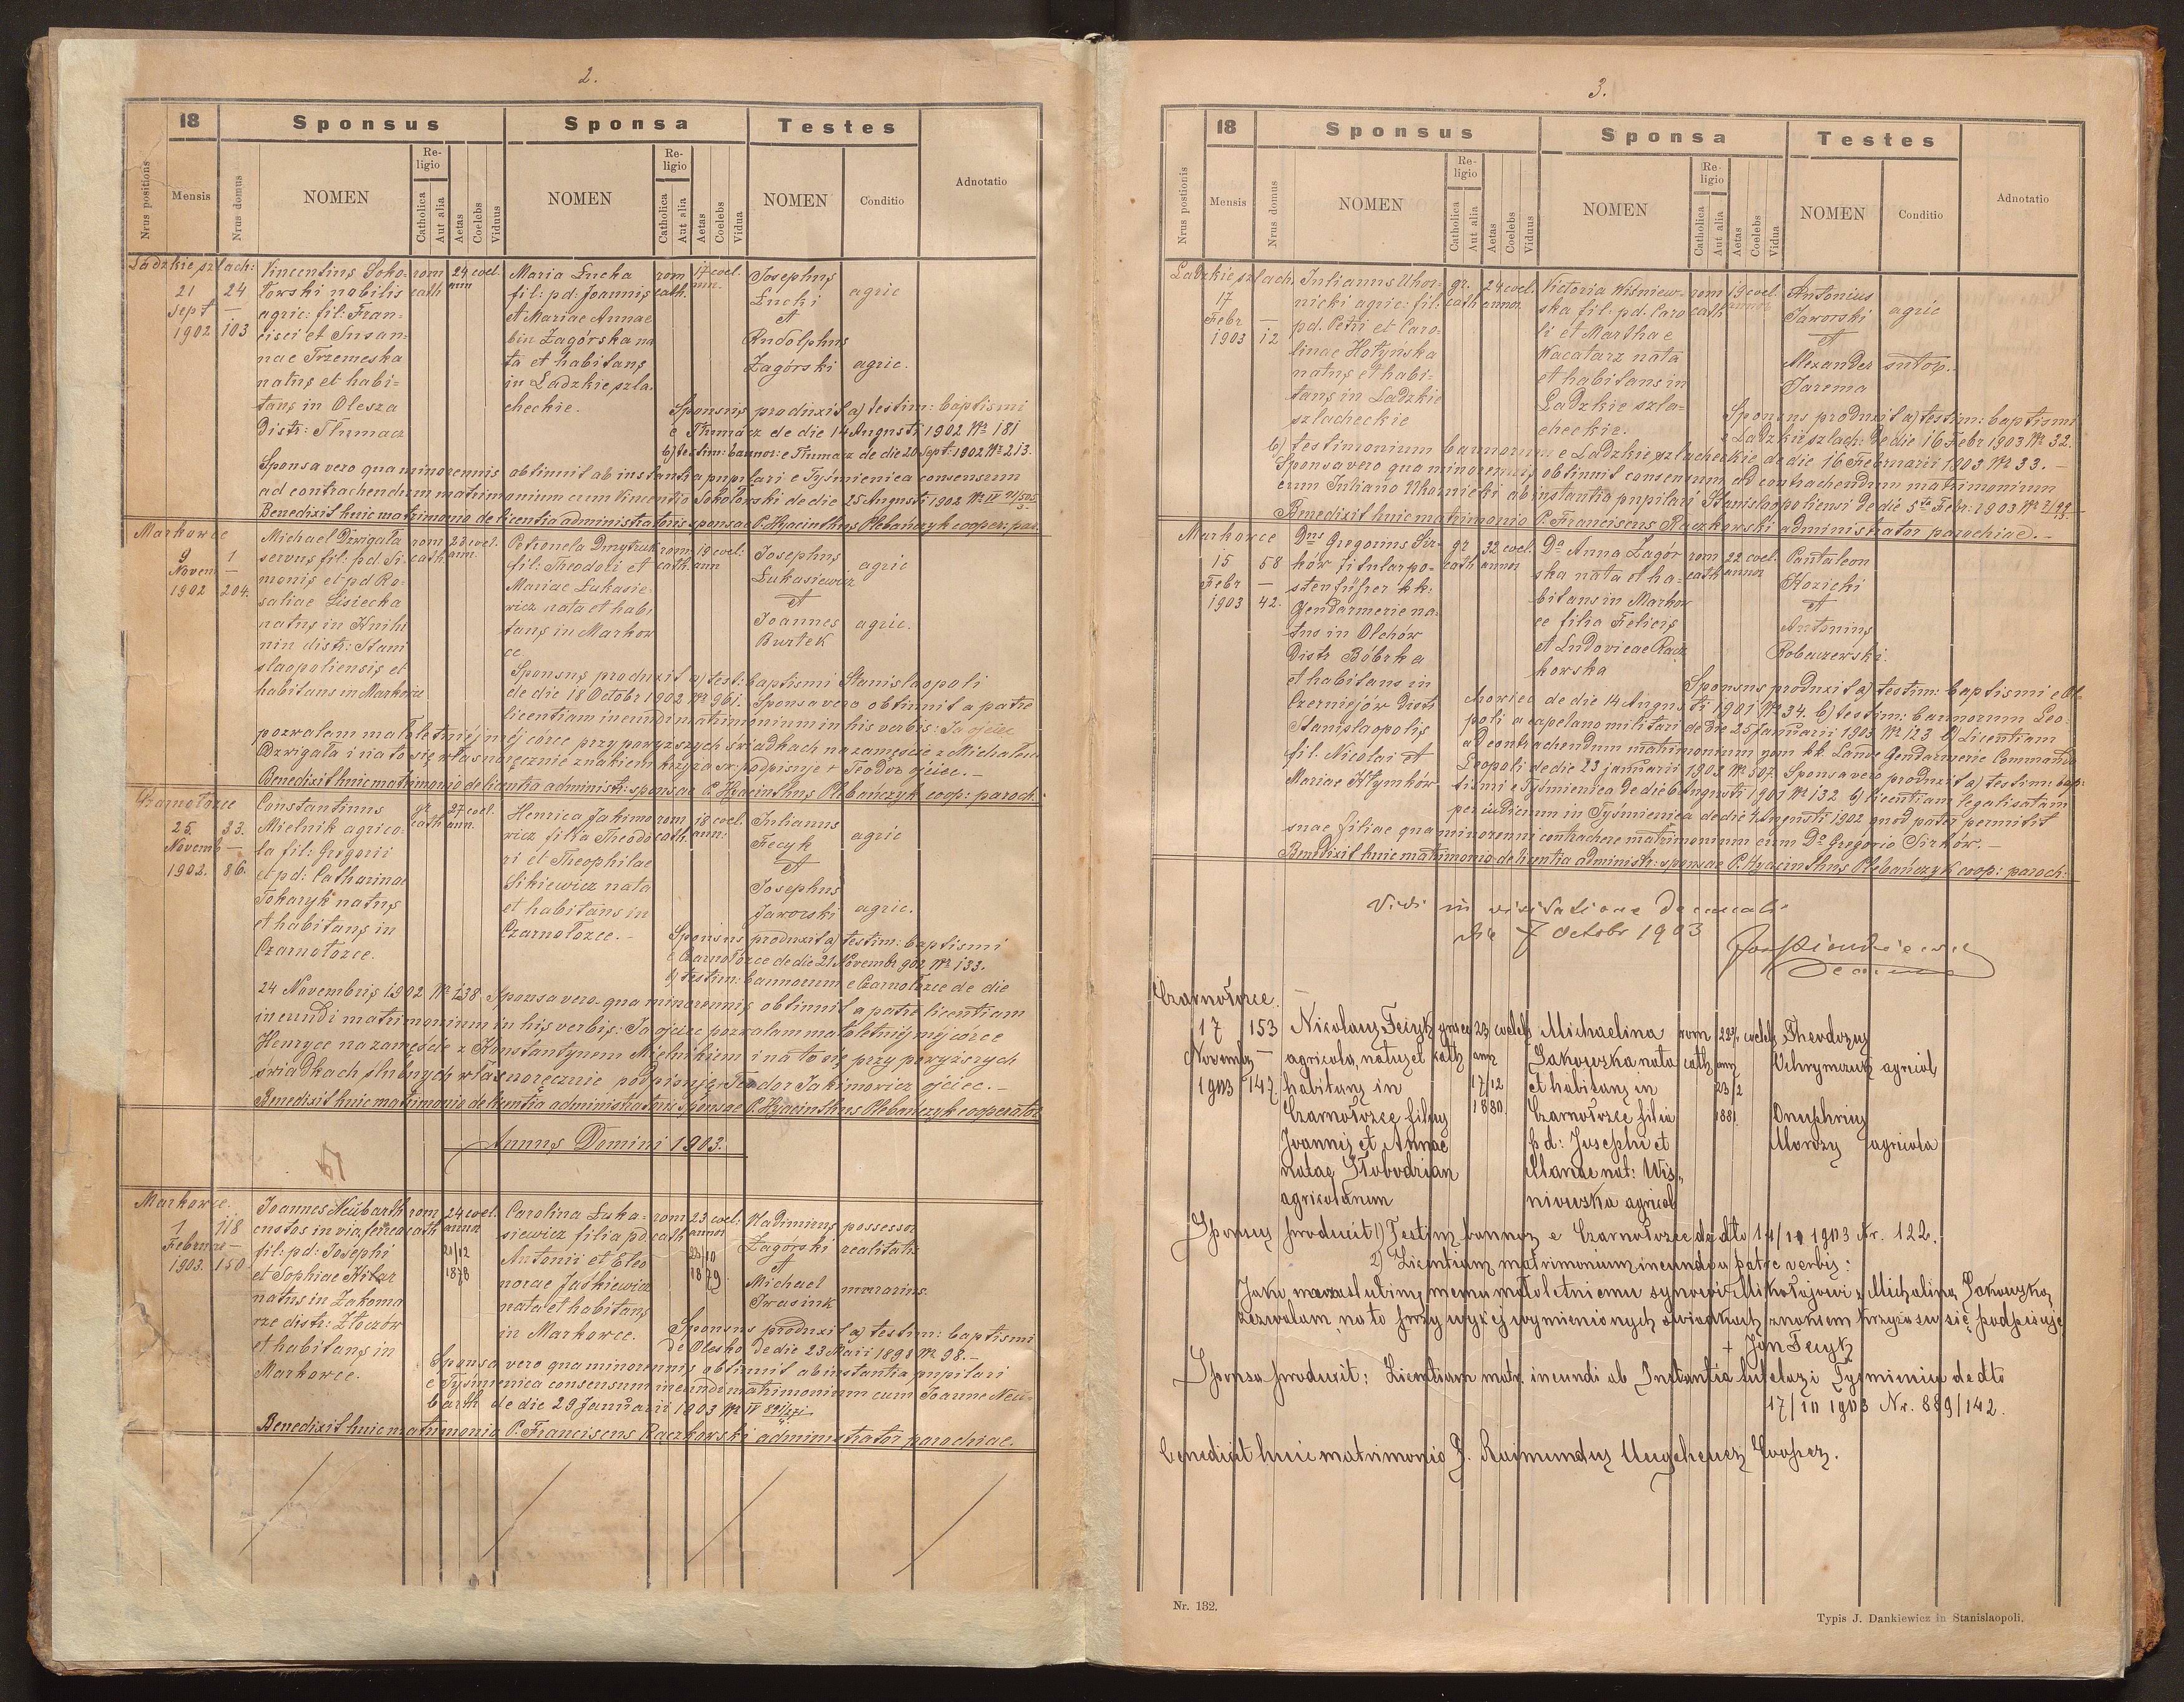 2.
18
Sponsus
Sponsa
Testes
Nrus positionis
Mensis
Nrus domus
NOMEN
Religio
Catholica
Aut alia
Aetas
Coelebs
Viduus
NOMEN
Religio
Catholica
Aut alia
Aetas
Coelebs
Vidua
NOMEN
Conditio
Adnotatio
Ladzkie szlach:
21 Sept 1902
24 — 103
Vincentius Soko-
łowski nobilis
agric: fil: Fran-
cisci et Susan-
nae Trzemeska
natus et habi-
tans in Olesza
Distr: Tłumacz
rom cath
24 ann
coel.
Maria Łucka
fil: pd: Joannis
et Mariae Annae
bin Zagórska na
ta et habitans
in Ladzkie szla-
checkie.
rom cath.
17 ann.
coel.
Josephus
Łucki
et
Rudolphus
Zagórski
agric
agric.
Sponsus produxit a) testim: baptismi
e Tłumacz de die 14 Augusti 1902 Nr 181
b) testim: bannor: e Tłumacz de die 20 Sept: 1902 Nr 213.
Sponsa vero qua minorennis obtinuit ab instantia pupilari e Tyśmienica consensum
ad contrachendum matrimonium cum Vincentio Sokołowski de die 25 Augusti 1902 Nr IV
Benedixit huic matrimonio de licentia administratoris sponsae P. Hyacinthus Plebańczyk cooper: par.
Markowce
9 Novem 1902
1 — 204.
Michael Dzwigała
servus fil: pd: Si-
monis et pd Ro-
saliae Lisiecka
natus in Knihi
nin distr: Stani
slaopoliensis et
habitans in Markowce
rom cath.
28 ann.
coel.
Petronela Dmytruk
fil: Theodori et
Mariae Łukasie-
wicz nata et habi
tans in Markow
ce.
rom cath.
19 ann
coel:
Josephus
Łukasiewicz
et
Joannes
Burtek
agric
agric.
Sponsus produxit a) test: baptismi Stanislaopoli
de die 18 Octobr 1902 Nr 961. Sponsa vero obtinuit a patre
licentiam ineundi matrimonium in his verbis: Ja ojciec
pozwalam małoletniej mej córce przy powyższych świadkach na zamęście z Michałem
Dzwigała i na to się własnoręcznie znakiem krzyża św: podpisuje + Teodor ojciec.—
Benedixit huic matrimonio de licentia administr: sponsae P. Hyacinthus Plebańczyk coop: paroch.
Czarnołozce
25. Novemb 1902.
33. — 86.
Constantinus
Mielnik agrico-
la fil: Gregorii
et pd: Catharinae
Tokaryk natus
et habitans in
Czarnołozce.
gr cath
27 ann.
coel.
Henrica Jakimo
wicz filia Theodo
ri et Theophilae
Sikiewicz nata
et habitans in
Czarnołozce.—
rom cath.
18 ann:
coel.
Julianus
Fecyk
et
Josephus
Jaworski
agric
agric.
Sponsus produxit a) testim: baptismi
e Czarnołozce de die 21 Novembr 902 Nr 133.
b) testim: bannorum e Czarnołozce de die
24 Novembris 1902 Nr 138. Sponsa vero qua minorennis obtinuit a patre licentiam
ineundi matrimonium in his verbis: Ja ojciec pozwalam małoletniej mej córce
Henryce na zamęście z Konstantynem Mielnikiem i na to się przy powyższych
świadkach ślubnych własnoręcznie podpisuję Teodor Jakimowicz ojciec.—
Benedixit huic matrimonio de licentia administratoris sponsae P. Hyacinthus Plebańczyk cooperator
Annus Domini 1903.
Markowce.
1 Februar 1903.
118 — 150
Joannes Neübarth
custos in via ferrea
fil: pd: Josephi
et Sophiae Kitar
natus in Zakoma
rze distr: Złoczów
et habitans in
Markowce.
rom cath
24 annor
21/12 1878
coel.
Carolina Łuka-
siewicz filia pd
Antonii et Eleo
norae Jaśkiewicz
nata et habitans
in Markowce.
rom cath
23 annor
23/10 1879
coel:
Vladimirus
Zagórski
et
Michael
Iwasiuk
possessor
realitatis
murarius.
Sponsus produxit a) testim: baptismi
de Olesko de die 23 Maii 1898 Nr 98.—
Sponsa vero qua minorennis obtinuit ab instantia pupilari
e Tyśmienica consensum ineundi matrimonium cum Joanne Neu-
barth de die 29 Januarii 1903 Nr IV
Benedixit huic matrimonio P. Franciscus Rączkowski administrator parochiae.
3.
18
Sponsus
Sponsa
Testes
Nrus postionis
Mensis
Nrus domus
NOMEN
Religio
Catholica
Aut alia
Aetas
Coelebs
Viduus
NOMEN
Religio
Catholica
Aut alia
Aetas
Coelebs
Vidua
NOMEN
Conditio
Adnotatio
Ladzkie szlach.
17 Febr 1903
— 12
Julianus Uhor-
nicki agric: fil:
pd. Petri et Caro-
linae Hotyńska
natus et habi-
tans in Ladzkie
szlacheckie
gr. cath
24 annor.
coel.
Victoria Wiśniew-
ska fil: pd. Caro
li et Marthae
Kacatarz nata
et habitans in
Ladzkie szla-
checkie.
rom cath
19
coel.
Antonius
Jaworski
et
Alexander
Jarema
agric
sutor.
Sponsus produxit a) testim: baptismi
e Ladzkie szlach: de die 16 Febr 1903 Nr 32.
b) testimonium bannorum e Ladzkie szlacheckie de die 16 Februarii 1903 Nr 33.—
Sponsa vero qua minorennis obtinuit consensum ad contrachendum matrimonium
cum Juliano Uhornicki ab instantia pupilari Stanislaopoliensi de die 5ta Febr: 1903 Nr
Benedixit huic matrimonio P. Franciscus Rączkowski administrator parochiae.—
Markowce
15 Febr 1903
58 — 42.
Dns Gregorius Sir-
ków titular po-
stenführer kk:
Gendarmerie na-
tus in Olchów
Distr Bóbrka
et habitans in
Czerniejów Distr
Stanislaopolis
fil. Nicolai et
Mariae Kłymków
gr cath
32 annor
coel.
Da Anna Zagór
ska nata et ha-
bitans in Markow
ce filia Felicis
et Ludovicae Racz
kowska
rom cath
22 annor
coel.
Pantaleon
Kozicki
et
Antonius
Robaczewski.
Sponsus produxit a) testim: baptismi e Ol-
chowiec de die 14 Augusti 1901 Nr 34. b) testim: bannorum Leo-
poli a capelano militari de die 25 Januarii 1903 Nr 123 c) Licentiam
ad contrachendum matrimonium vom kk Landes Gendarmerie Commando
Leopoli de die 23 januarii 1903 Nr 507. Sponsa vero produxit a) testim: bap-
tismi e Tyśmienica de die 6 Augusti 1901 Nr 132 b) licentiam legalisatam
per iudicium in Tyśmienica de die Augusti 1902 quod pater permisit
suae filiae qua minorenni contrachere matrimonium cum Do Gregorio Sirków.—
Benedixit huic matrimonio de licentia administr: sponsae P. Hyacinthus Plebańczyk coop: paroch.
Vidi in visitatione Decanali
die 7 Octobr 1903
Czarnołozce.
17 Novembr 1903
153 — 147.
Nicolaus Fecyk
agricola, natus et
habitans in
Czarnołozce filius
Joannis et Annae
natae Słobodzian
agricolarum
graec cath
23 ann
17/12 1880.
coelebs
Michaelina
Sakowska nata
et habitans in
Czarnołozce filia
pd: Josephi et
Mariae nat: Wis-
niowska agricol
rom cath
22 ann
23/2 1881
coelebs
Theodorus
Uchrymczuk
Onuphrius
Morozy
agricola
agricola
Sponsus produxit 1) Testim bannor e Czarnołozce de dto 14/10 1903 Nr. 122.
2) Licentiam matrimonium ineundi a patre verbis:
Jako na zaslubiny memu małoletniemu synowi Mikołajowi z Michaliną Sakowską
zezwalam, na to przy wyżej wymienionych świadkach znakiem krzyża su się podpisuję
+ Jan Fecyk
Sponsa produxit: Licentiam matr. ineundi ab Instantia tutelari Tyśmienica de dto
17/10 1903 Nr. 889/142.
Benedixit huic matrimonio P. Raimundus Ungeheuer Cooper.
Nr. 132.
Typis J. Dankiewicz in Stanislaopoli.